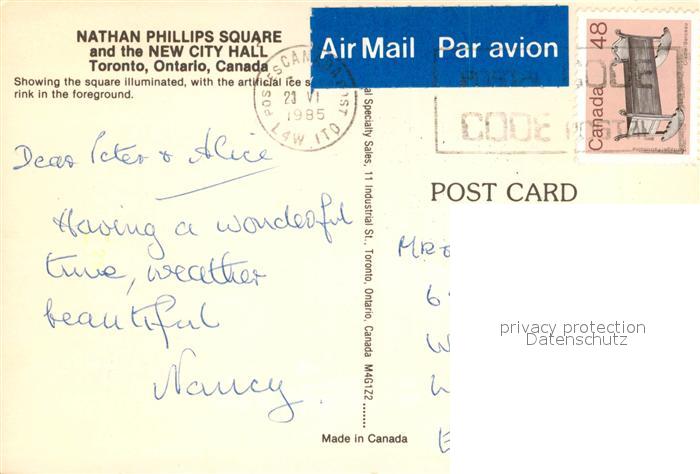 NATHAN PHILLIPS SQUARE
and the NEW CITY HALL
Toronto, Ontario, Canada
Showing the square illuminated, with the artificial ice
rink in the foreground.
Air Mail Par avion
POSTES CANADA POST
21 VI
1985
L4W 1T0
CODE
CODE POSTAL
Canada 48
Dear Peter & Alice
Having a wonderful
time, weather
beautiful
Nancy
Specialty Sales, 11 Industrial St., Toronto, Ontario, Canada M4G1Z2
POST CARD
privacy protection
Datenschutz
Made in Canada